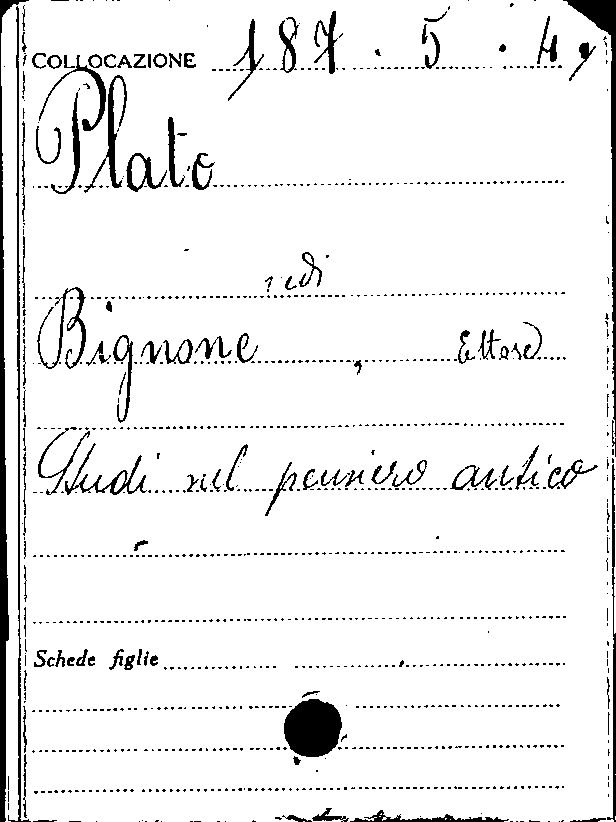 COLLOCAZIONE 187.5.4,
Plato
vedi
Bignone, Ettore
Studi nel pensiero antico
Schede figlie